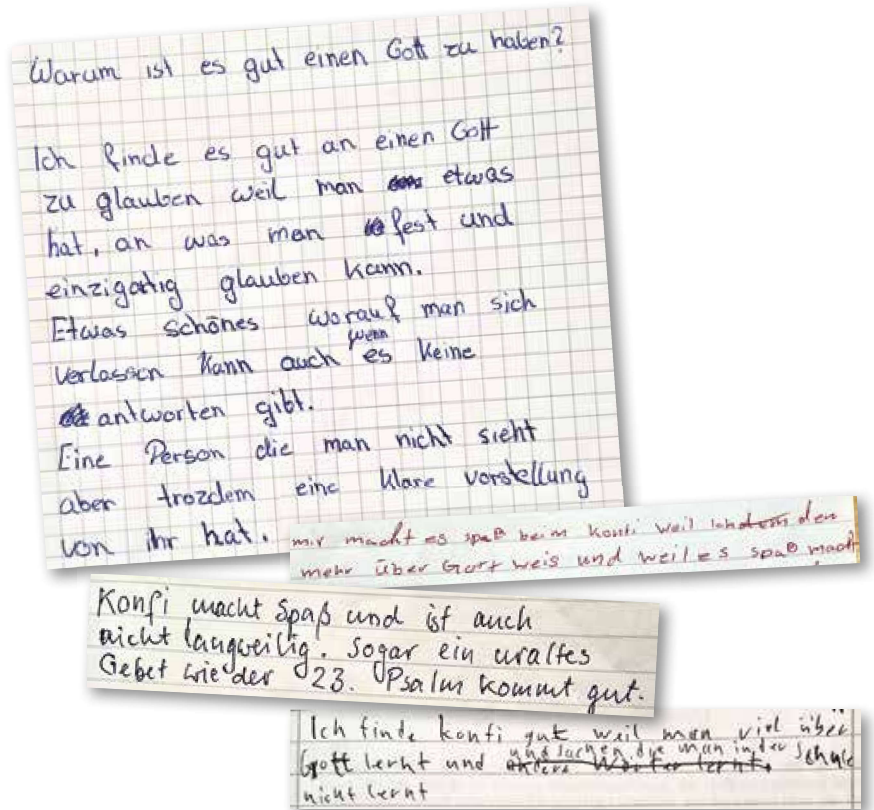 Warum ist es gut einen Gott zu haben?
Ich finde es gut an einen Gott
zu glauben weil man etwas
hat, an was man fest und
einzigartig glauben kann.
Etwas schönes worauf man sich
verlassen kann auch wenn es keine
antworten gibt.
Eine Person die man nicht sieht
aber trozdem eine klare vorstellung
von ihr hat.
mir macht es spaß beim konfi weil ich den
mehr über Gott weis und weil es spaß macht
Konfi macht Spaß und ist auch
nicht langweilig. Sogar ein uraltes
Gebet wie der 23. Psalm kommt gut.
Ich finde konfi gut weil man viel über
Gott lernt und und sachen die man in der Schule
nicht lernt